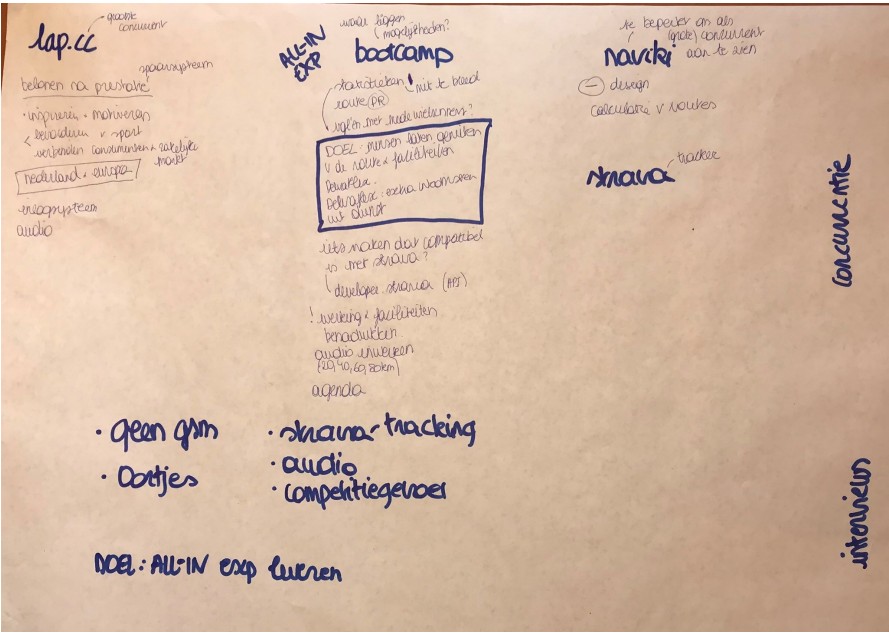 lap.cc
grootste
concurrent
spaarsysteem
belonen na prestatie
· inspireren · motiveren
< bevorderen v sport
verbinden consumenten & zakelijke
markt
nederland & europa
audio
ALL-IN
EXP
waar liggen
mogelijkheden?
bootcamp
statistieken ! niet te breed
route (PR)
DOEL: mensen laten genieten
v de route & faciliteiten
iets maken dat compatibel
is met strava?
developer.strava (API)
! werking & faciliteiten
benadrukken
audio inwerken
(20, 40, 60, 80km)
agenda
te beperkt om als
(grote) concurrent
naviki aan te zien
(–) design
calculatie v routes
strava
tracker
concurrentie
· geen gsm
· Oortjes
· strava-tracking
· audio
· competitiegevoel
interviews
DOEL: ALL-IN exp leveren